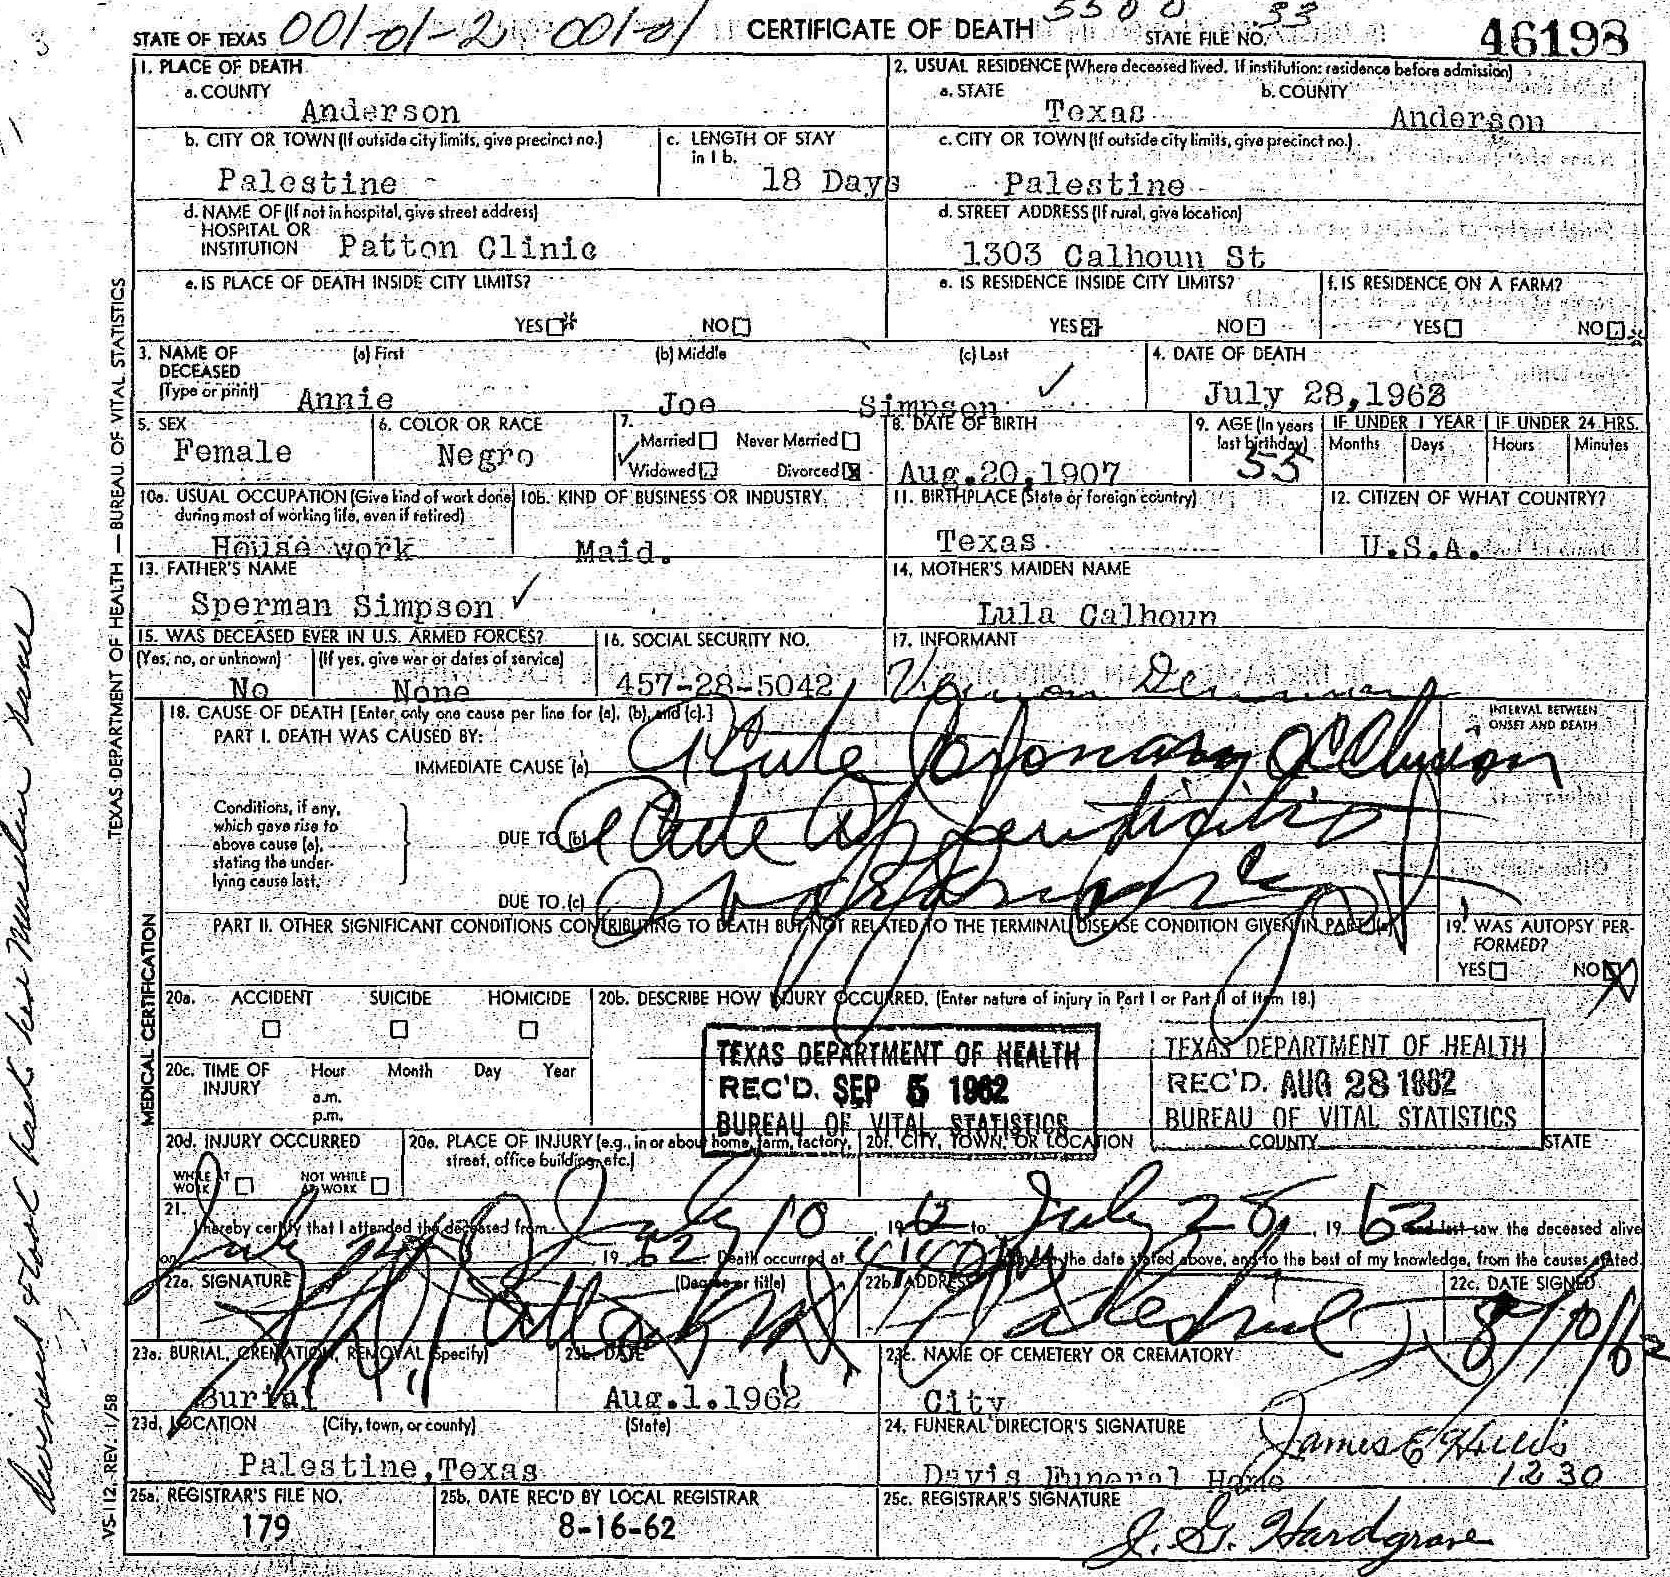 STATE OF TEXAS 001-01-2 001-01 CERTIFICATE OF DEATH 5500 33 STATE FILE NO. 46198
1. PLACE OF DEATH
a. COUNTY
Anderson
2. USUAL RESIDENCE (Where deceased lived. If institution: residence before admission)
a. STATE b. COUNTY
Texas Anderson
b. CITY OR TOWN (If outside city limits, give precinct no.)
Palestine
c. LENGTH OF STAY
in 1 b.
18 Days
c. CITY OR TOWN (If outside city limits, give precinct no.)
Palestine
d. NAME OF (If not in hospital, give street address)
HOSPITAL OR
INSTITUTION Patton Clinic
d. STREET ADDRESS (If rural, give location)
1303 Calhoun St
e. IS PLACE OF DEATH INSIDE CITY LIMITS?
YES NO
e. IS RESIDENCE INSIDE CITY LIMITS?
YES NO
f. IS RESIDENCE ON A FARM?
YES NO
3. NAME OF
DECEASED
(Type or print)
(a) First (b) Middle (c) Last
Annie Joe Simpson
4. DATE OF DEATH
July 28,1962
5. SEX
Female
6. COLOR OR RACE
Negro
7.
Married Never Married
Widowed Divorced
8. DATE OF BIRTH
Aug.20,1907
9. AGE (In years
last birthday)
55
IF UNDER 1 YEAR
Months Days
IF UNDER 24 HRS.
Hours Minutes
10a. USUAL OCCUPATION (Give kind of work done
during most of working life, even if retired)
House work
10b. KIND OF BUSINESS OR INDUSTRY
Maid.
11. BIRTHPLACE (State or foreign country)
Texas
12. CITIZEN OF WHAT COUNTRY?
U.S.A.
13. FATHER'S NAME
Sperman Simpson
14. MOTHER'S MAIDEN NAME
Lula Calhoun
15. WAS DECEASED EVER IN U.S. ARMED FORCES?
(Yes, no, or unknown) (If yes, give war or dates of service)
No None
16. SOCIAL SECURITY NO.
457-28-5042
17. INFORMANT
18. CAUSE OF DEATH [Enter only one cause per line for (a), (b), and (c).]
PART I. DEATH WAS CAUSED BY:
IMMEDIATE CAUSE (a) Acute Coronary Occlusion
INTERVAL BETWEEN
ONSET AND DEATH
Conditions, if any,
which gave rise to
above cause (a),
stating the under-
lying cause last.
DUE TO (b) Acute Appendicitis
DUE TO (c)
PART II. OTHER SIGNIFICANT CONDITIONS CONTRIBUTING TO DEATH BUT NOT RELATED TO THE TERMINAL DISEASE CONDITION GIVEN IN PART I(a)
19. WAS AUTOPSY PER-
FORMED?
YES NO
20a. ACCIDENT SUICIDE HOMICIDE
20b. DESCRIBE HOW INJURY OCCURRED. (Enter nature of injury in Part I or Part II of Item 18.)
20c. TIME OF
INJURY
Hour Month Day Year
a.m.
p.m.
TEXAS DEPARTMENT OF HEALTH
REC'D. SEP 5 1962
BUREAU OF VITAL STATISTICS
TEXAS DEPARTMENT OF HEALTH
REC'D. AUG 28 1962
BUREAU OF VITAL STATISTICS
20d. INJURY OCCURRED
WHILE AT
WORK
NOT WHILE
AT WORK
20e. PLACE OF INJURY (e.g., in or about home, farm, factory,
street, office building, etc.)
20f. CITY, TOWN, OR LOCATION COUNTY STATE
21.
I hereby certify that I attended the deceased from July 10 1962 to July 28, 1962 and last saw the deceased alive
on July 28 1962 Death occurred at the date stated above, and to the best of my knowledge, from the causes stated.
22a. SIGNATURE (Degree or title)
22b. ADDRESS
Palestine
22c. DATE SIGNED
8/10/62
23a. BURIAL, CREMATION, REMOVAL (Specify)
Burial
23b. DATE
Aug.1.1962
23c. NAME OF CEMETERY OR CREMATORY
City
23d. LOCATION (City, town, or county) (State)
Palestine,Texas
24. FUNERAL DIRECTOR'S SIGNATURE
James E Hillis
Davis Funeral Home 1230
25a. REGISTRAR'S FILE NO.
179
25b. DATE REC'D BY LOCAL REGISTRAR
8-16-62
25c. REGISTRAR'S SIGNATURE
J. G. Hardgrave
TEXAS DEPARTMENT OF HEALTH — BUREAU OF VITAL STATISTICS
MEDICAL CERTIFICATION
VS-112, REV. 1/58